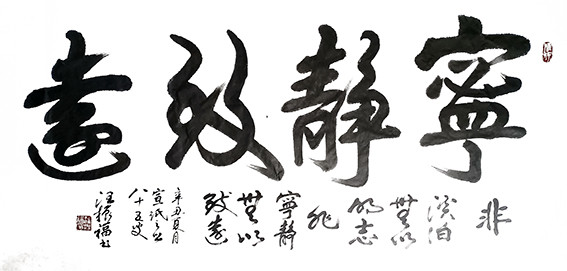 寧靜致遠
非
淡泊
無以
明志
非
寧靜
無以
致遠
辛丑夏月
八十五叟
汪振福书